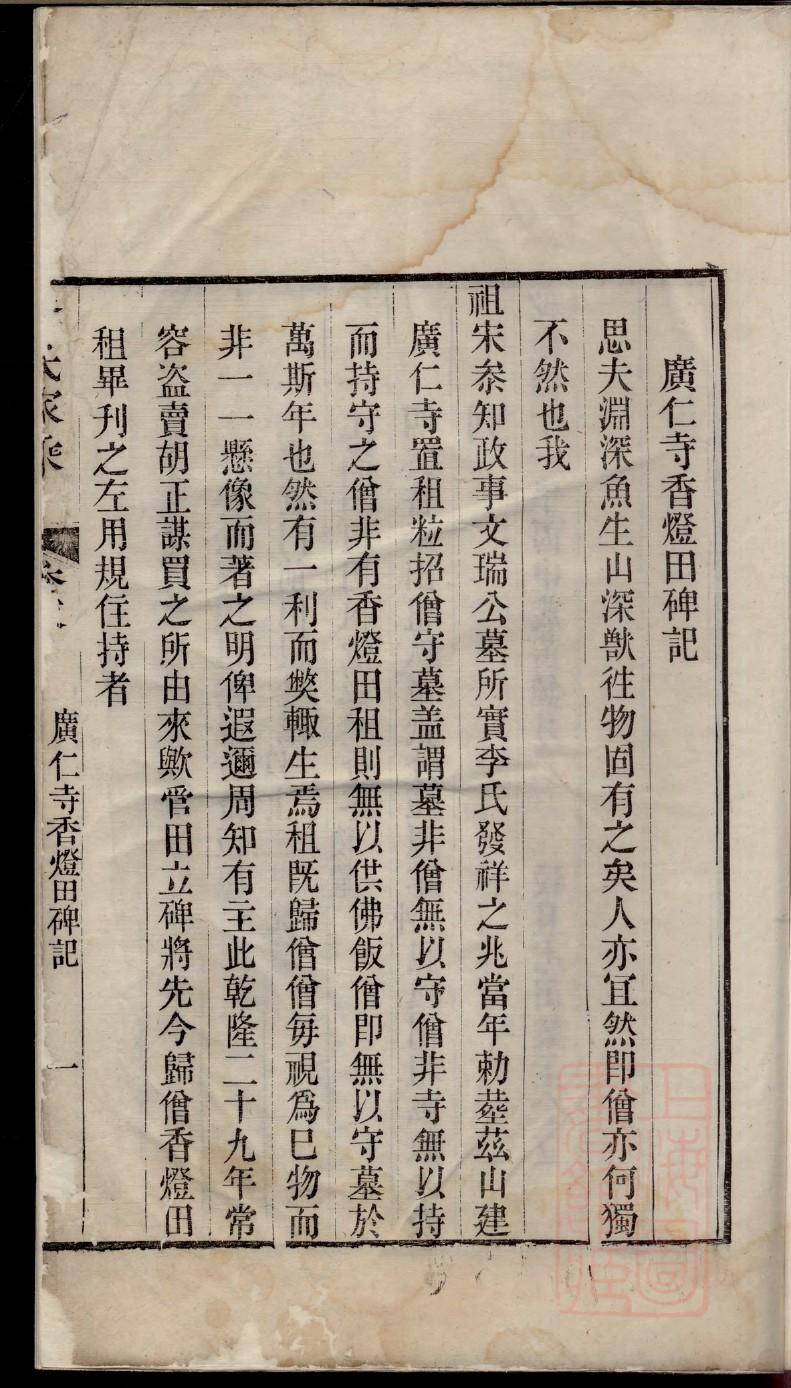 廣仁寺香燈田碑記
思夫淵深魚生山深獸徃物固有之矣人亦冝然即僧亦何獨
不然也我
祖宋叅知政事文瑞公墓所實李氏發祥之兆當年勅塟茲山建
廣仁寺置租粒招僧守墓盖謂墓非僧無以守僧非寺無以持
而持守之僧非有香燈田租則無以供佛飯僧即無以守墓於
萬斯年也然有一利而獘輙生焉租既歸僧僧每視爲巳物而
非一一懸像而著之明俾遐邇周知有主此乾隆二十九年常
容盗賣胡正謀買之所由來歟眢田立碑將先今歸僧香燈田
租畢刋之左用規住持者
氏家乘
廣仁寺香燈田碑記
一